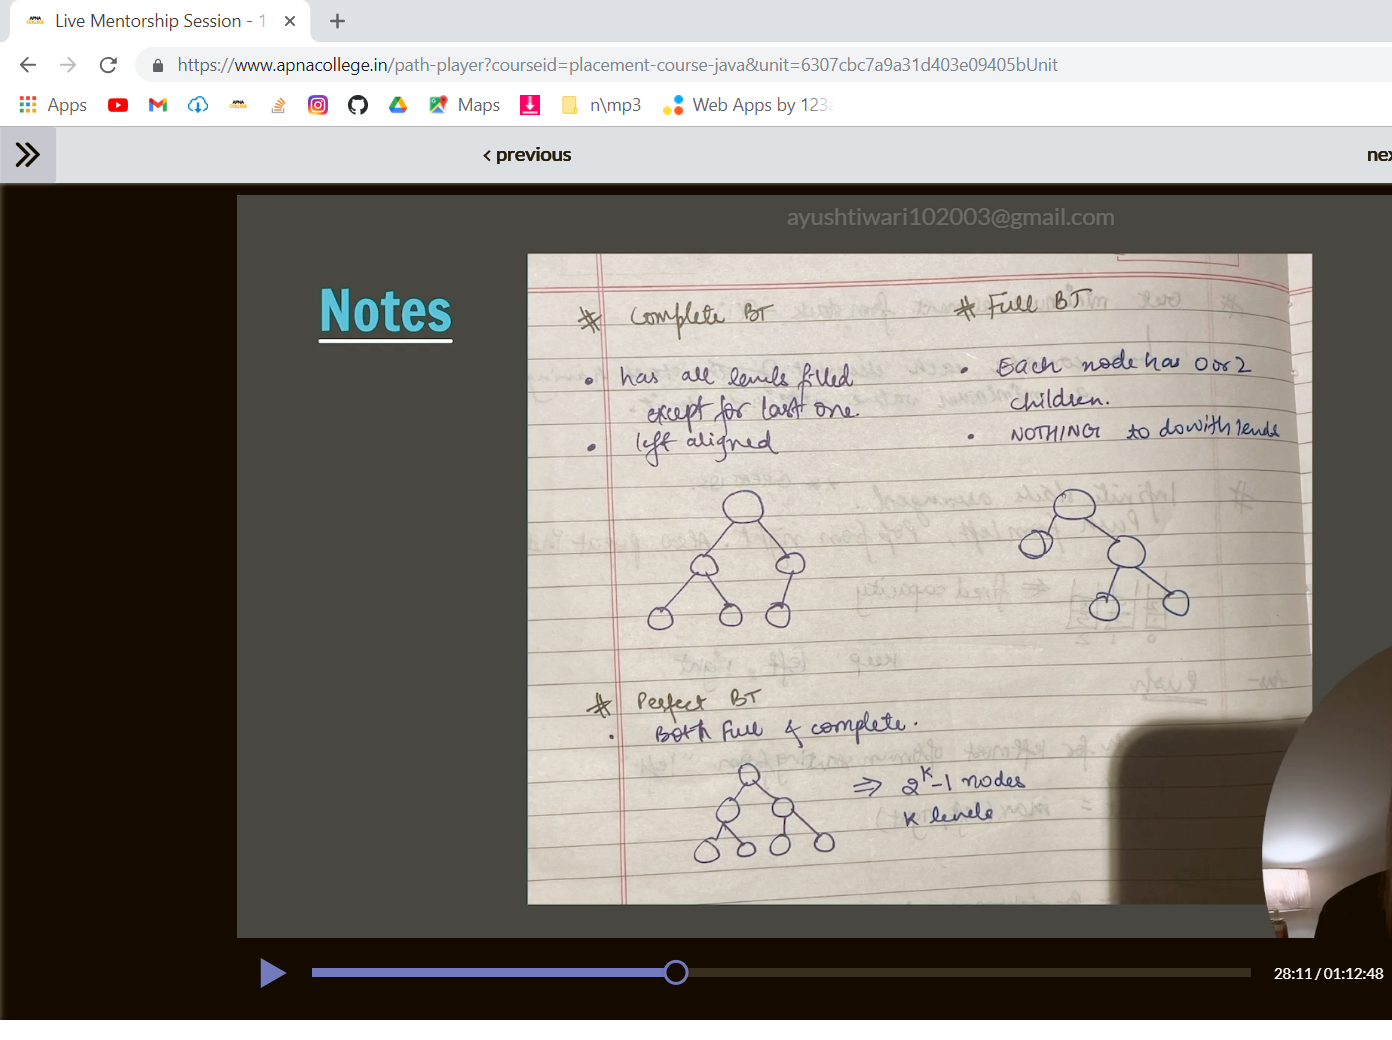 Live Mentorship Session - 1
https://www.apnacollege.in/path-player?courseid=placement-course-java&unit=6307cbc7a9a31d403e09405bUnit
Apps
Maps
n\mp3
Web Apps by 123
< previous
nex
ayushtiwari102003@gmail.com
Notes
# Complete BT
• has all levels filled
except for last one.
• left aligned
# Full BT
• Each node has 0 or 2
children.
• NOTHING to do with levels
# Perfect BT
• Both Full & complete.
⇒ 2^k-1 nodes
K levels
28:11 / 01:12:48